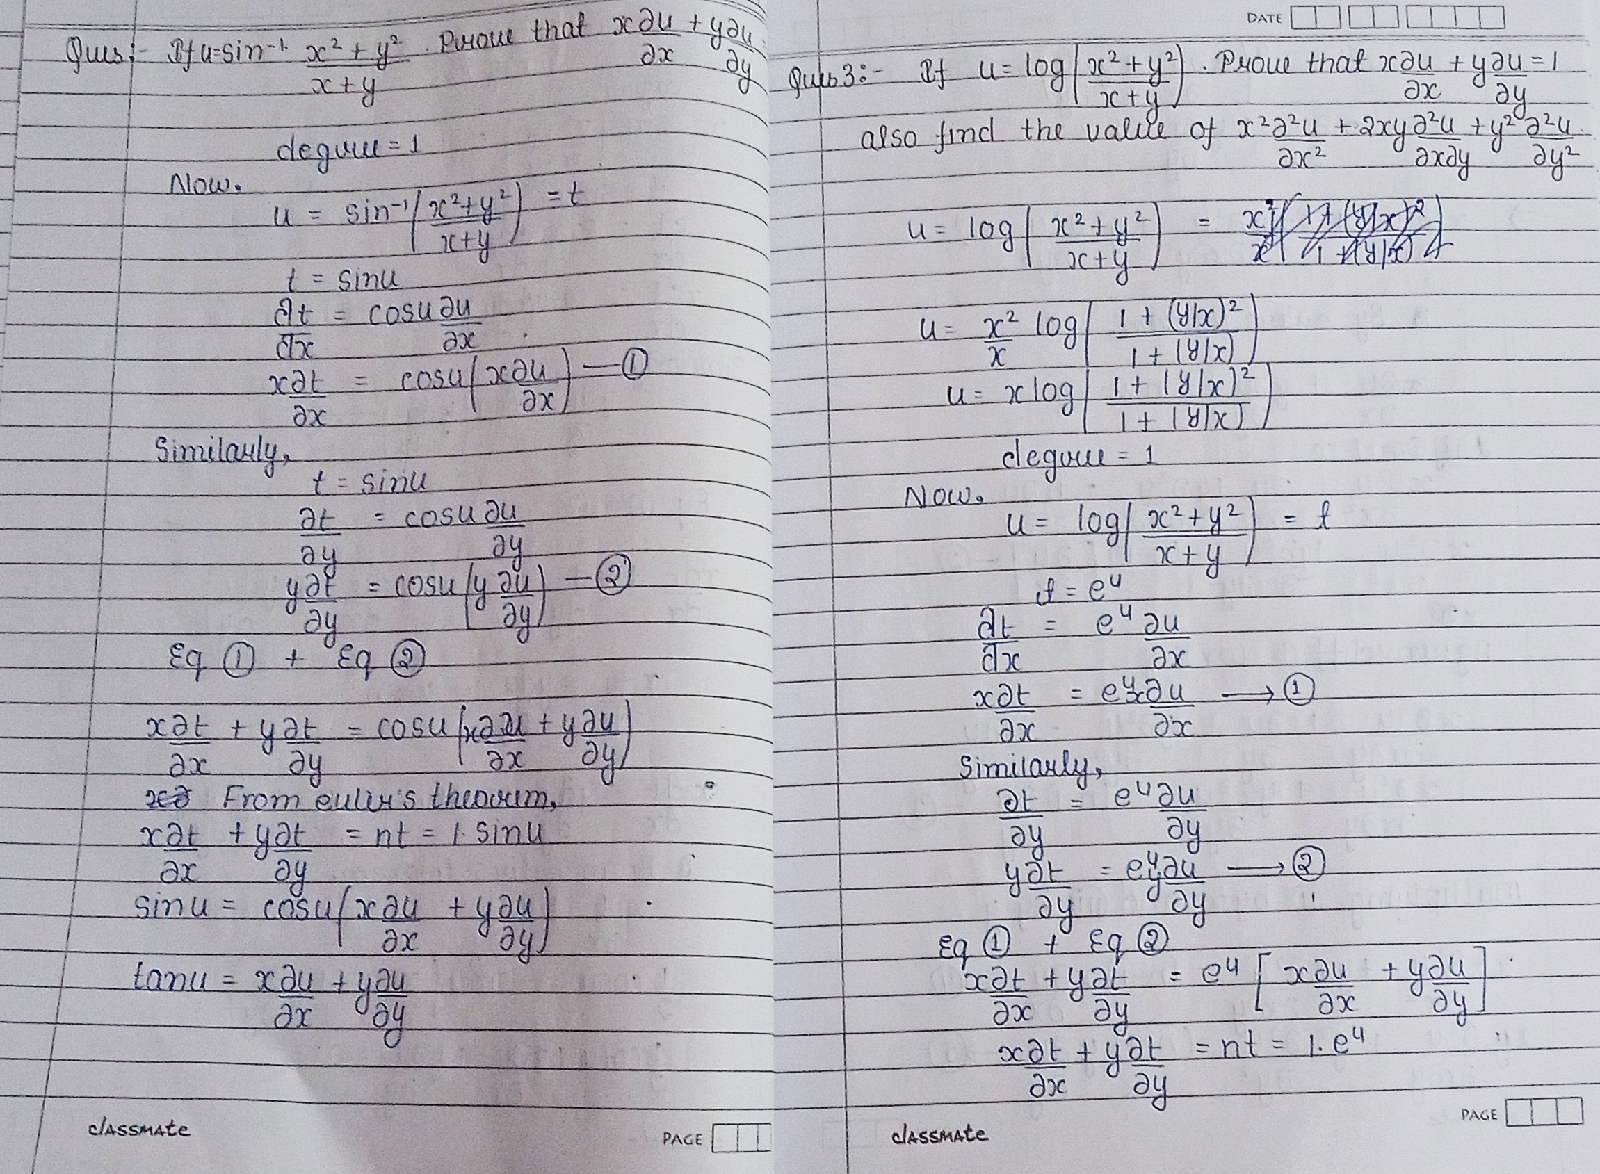 Ques:- If u=sin⁻¹ (x²+y²)/(x+y). Prove that x∂u/∂x + y∂u/∂y.
degree = 1
Now,
u = sin⁻¹((x²+y²)/(x+y)) = t
t = sinu
∂t/∂x = cosu ∂u/∂x
x∂t/∂x = cosu(x∂u/∂x) — ①
Similarly,
t = sinu
∂t/∂y = cosu ∂u/∂y
y∂t/∂y = cosu(y∂u/∂y) — ②
Eq ① + Eq ②
x∂t/∂x + y∂t/∂y = cosu(x∂u/∂x + y∂u/∂y)
From euler's theorem,
x∂t/∂x + y∂t/∂y = nt = 1. sinu
sinu = cosu(x∂u/∂x + y∂u/∂y)
tanu = x∂u/∂x + y∂u/∂y
classmate
PAGE
DATE
Ques 3:- If u = log((x²+y²)/(x+y)). Prove that x∂u/∂x + y∂u/∂y = 1
also find the value of x²∂²u/∂x² + 2xy∂²u/∂x∂y + y²∂²u/∂y².
u = log((x²+y²)/(x+y)) =
u = x²/x log((1+(y/x)²)/(1+(y/x)))
u = x log((1+(y/x)²)/(1+(y/x)))
degree = 1
Now,
u = log((x²+y²)/(x+y)) = t
t = eᵘ
∂t/∂x = eᵘ ∂u/∂x
x∂t/∂x = eᵘx∂u/∂x → ①
Similarly,
∂t/∂y = eᵘ ∂u/∂y
y∂t/∂y = eᵘy∂u/∂y → ②
Eq ① + Eq ②
x∂t/∂x + y∂t/∂y = eᵘ[x∂u/∂x + y∂u/∂y]
x∂t/∂x + y∂t/∂y = nt = 1. eᵘ
classmate
PAGE